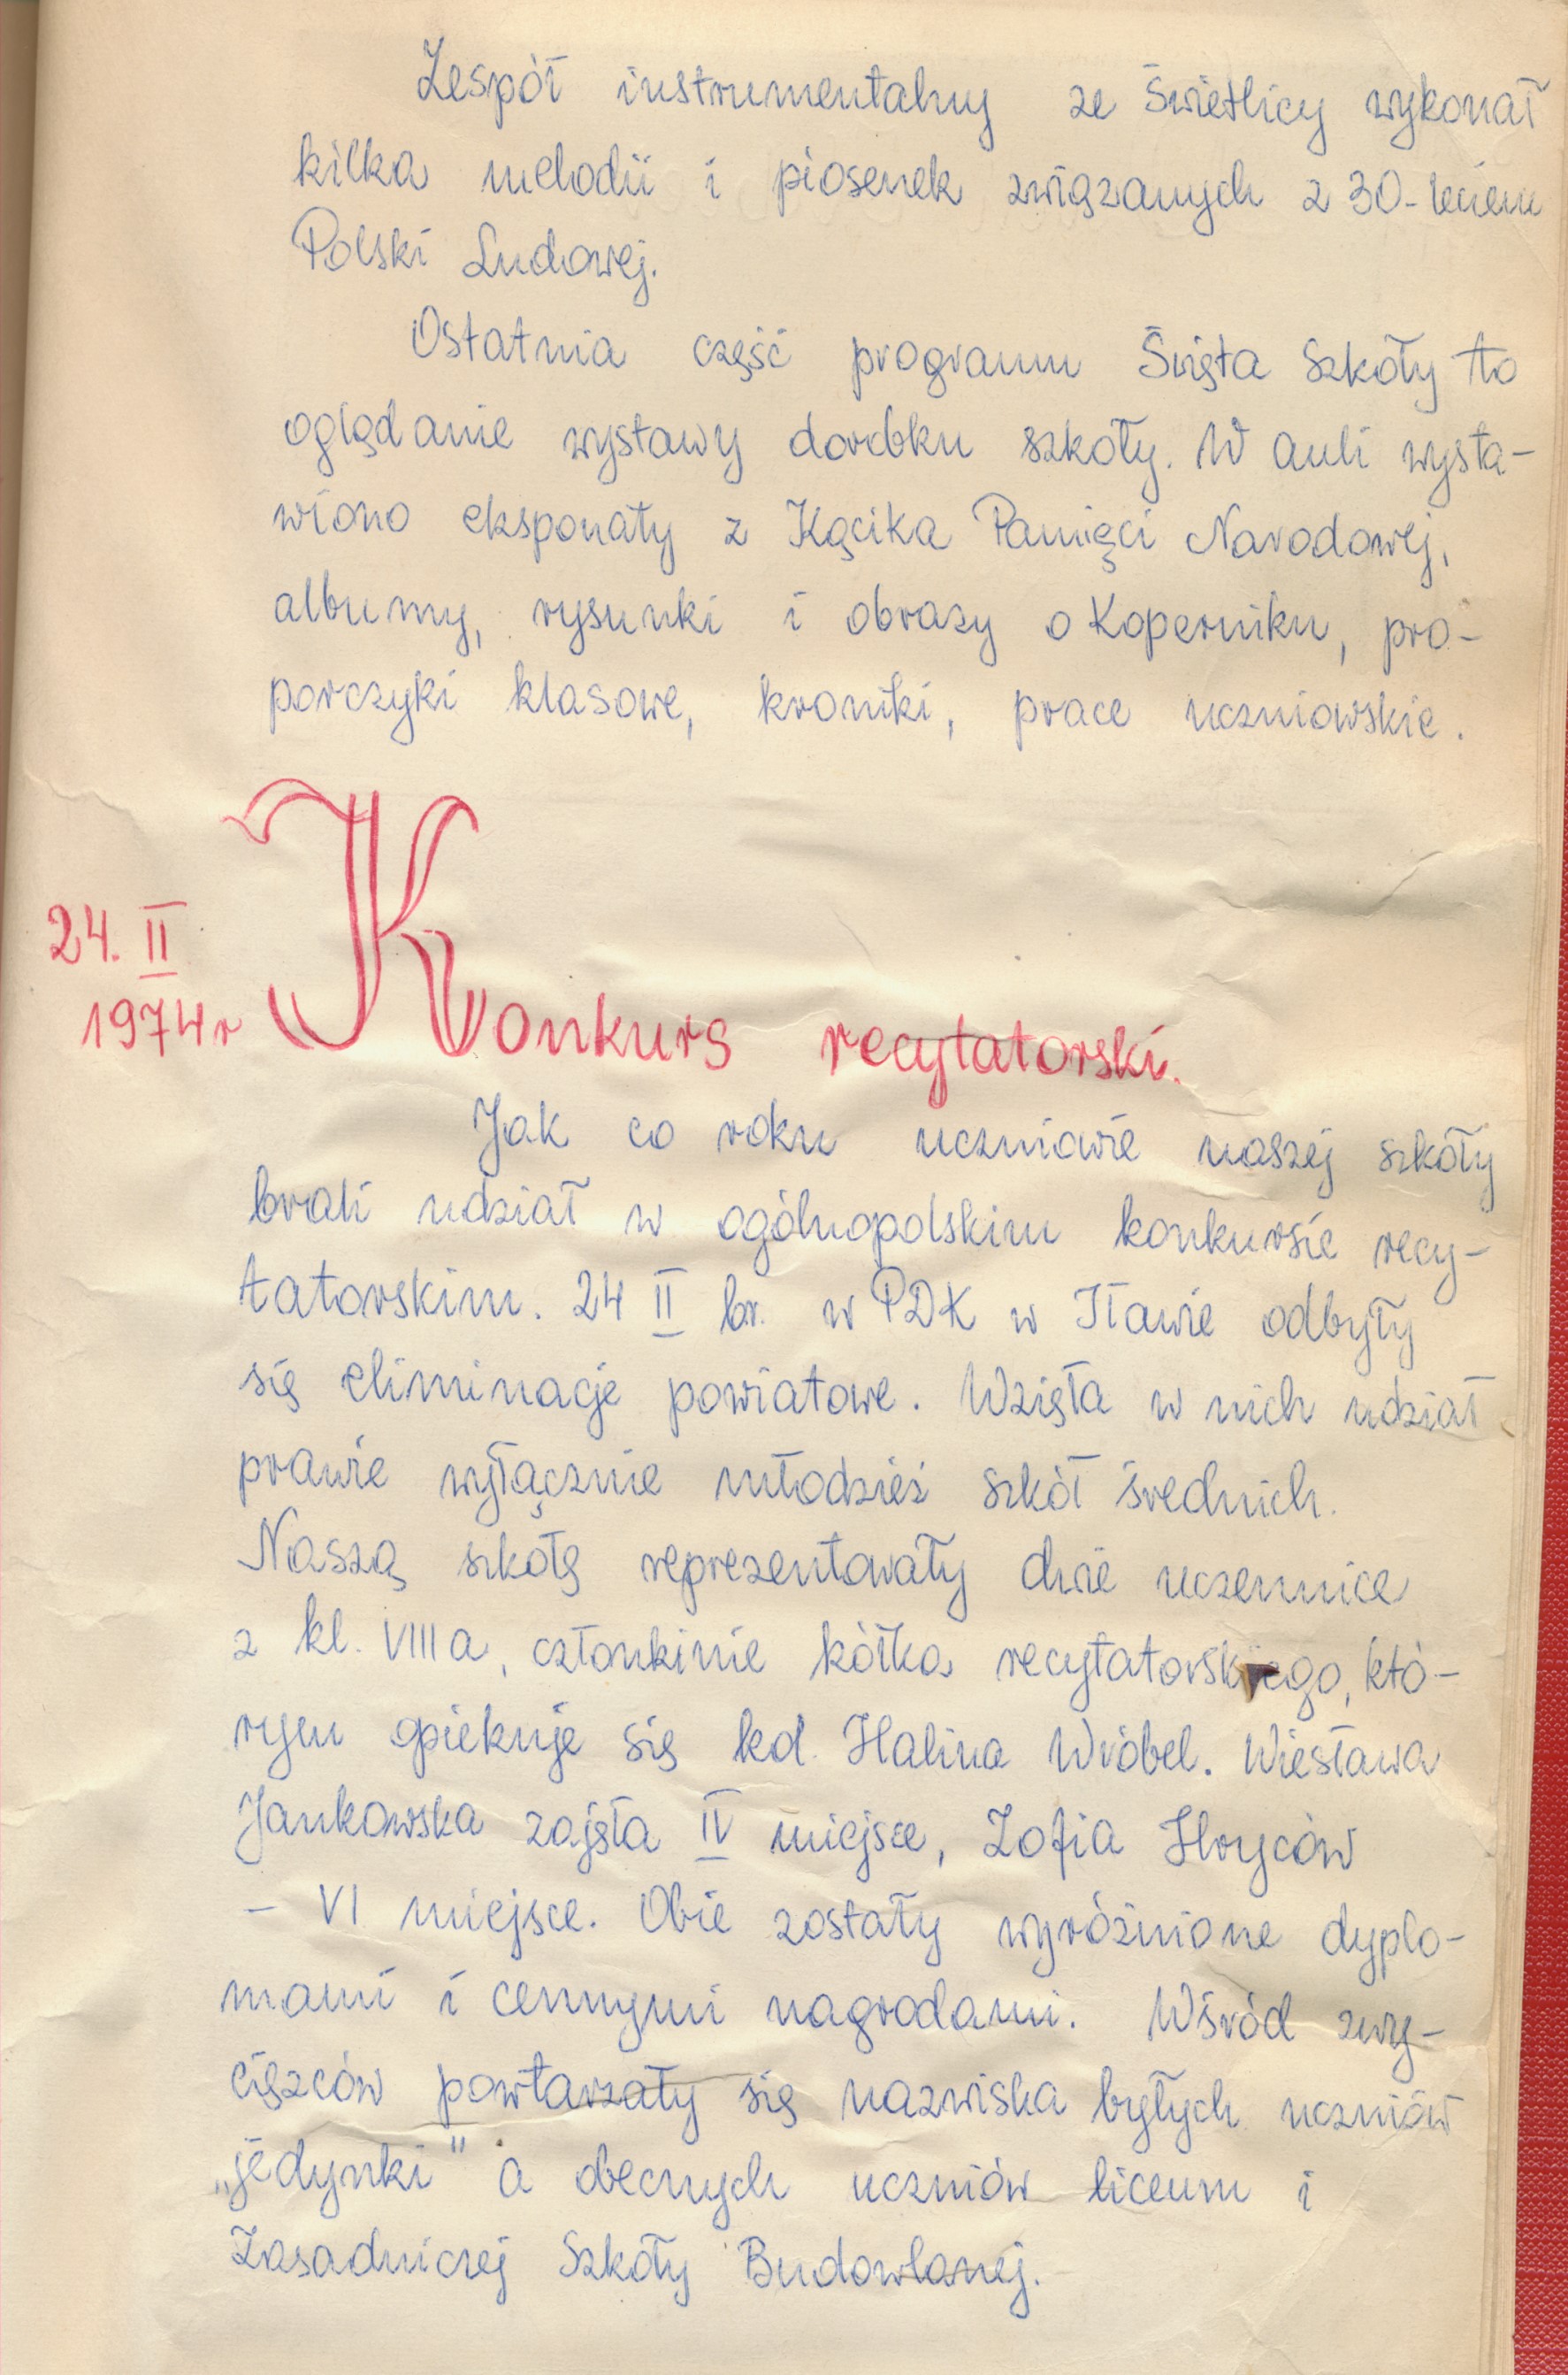 Zespół instrumentalny ze świetlicy wykonał
kilka melodii i piosenek związanych z 30-leciem
Polski Ludowej.
Ostatnia część programu Święta Szkoły to
oglądanie wystawy dorobku szkoły. W auli wysta-
wiono eksponaty z Kącika Pamięci Narodowej,
albumy, rysunki i obrazy o Koperniku, pro-
porczyki klasowe, kroniki, prace uczniowskie.
24. II
1974 r
Konkurs recytatorski.
Jak co roku uczniowie naszej szkoły
brali udział w ogólnopolskim konkursie recy-
tatorskim. 24 II br. w PDK w Iławie odbyły
się eliminacje powiatowe. Wzięła w nich udział
prawie wyłącznie młodzież szkół średnich.
Naszą szkołę reprezentowały dwie uczennice
z kl. VIII a, członkinie kółka recytatorskiego, któ-
rym opiekuje się kol. Halina Wróbel. Wiesława
Jankowska zajęła IV miejsce, Zofia Hryców
– VI miejsce. Obie zostały wyróżnione dyplo-
mami i cennymi nagrodami. Wśród zwy-
cięzców powtarzały się nazwiska byłych uczniów
„jedynki" a obecnych uczniów liceum i
Zasadniczej Szkoły Budowlanej.